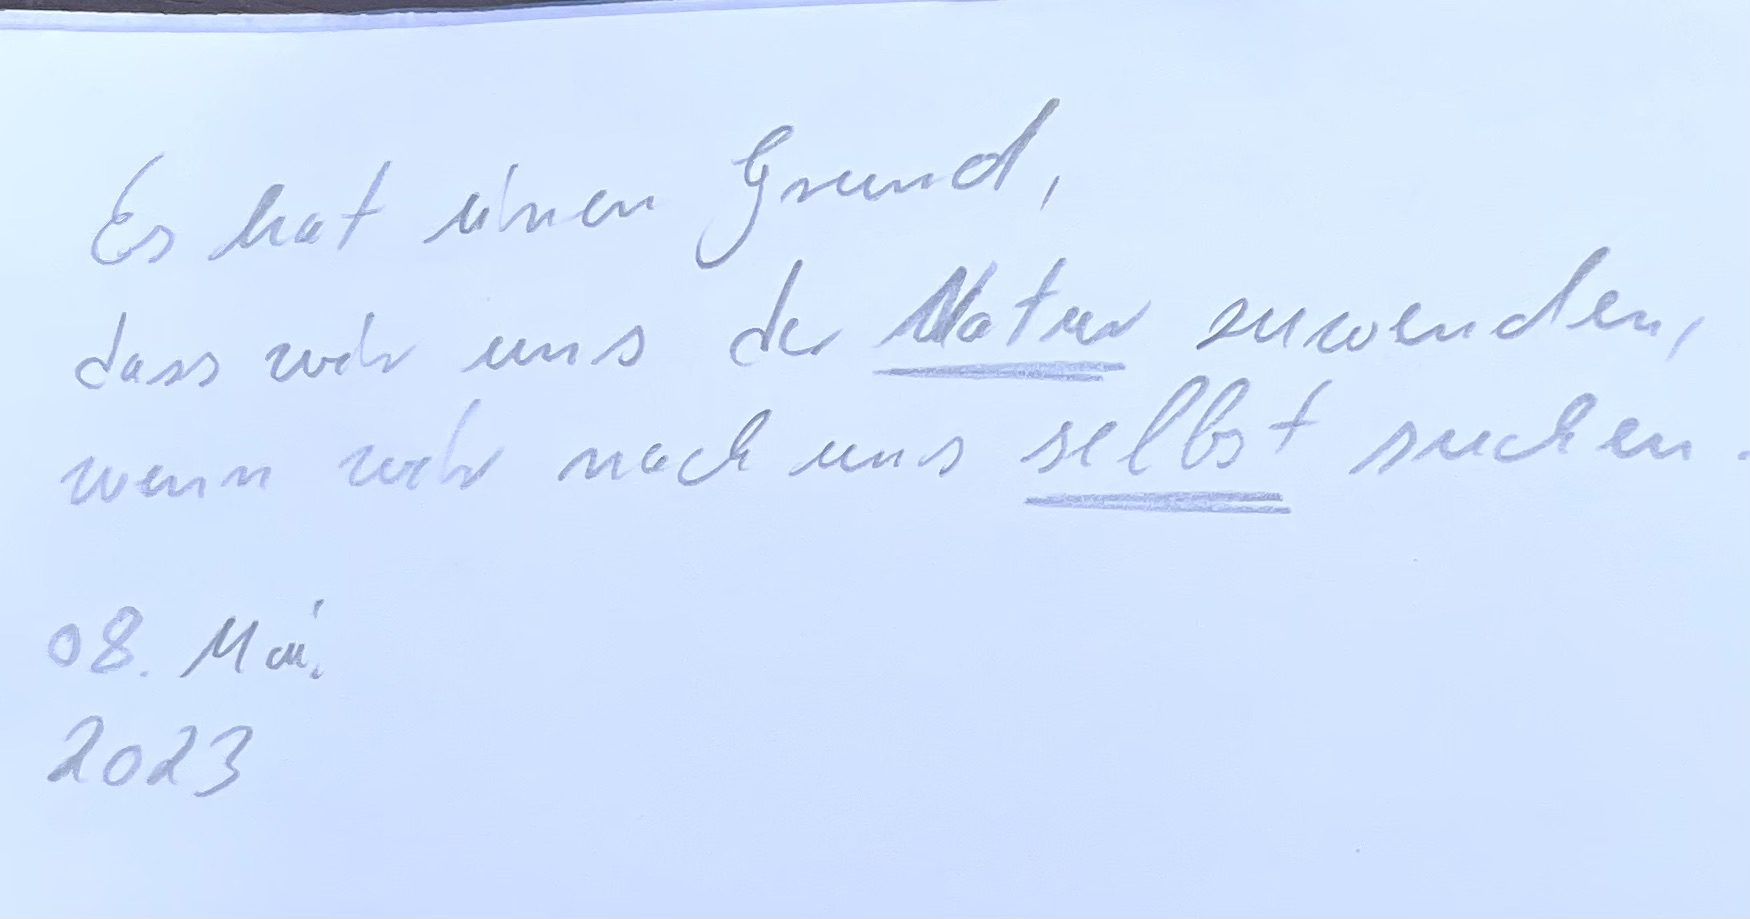 Es hat einen Grund,
dass wir uns der Natur zuwenden,
wenn wir nach uns selbst suchen.
08. Mai.
2023